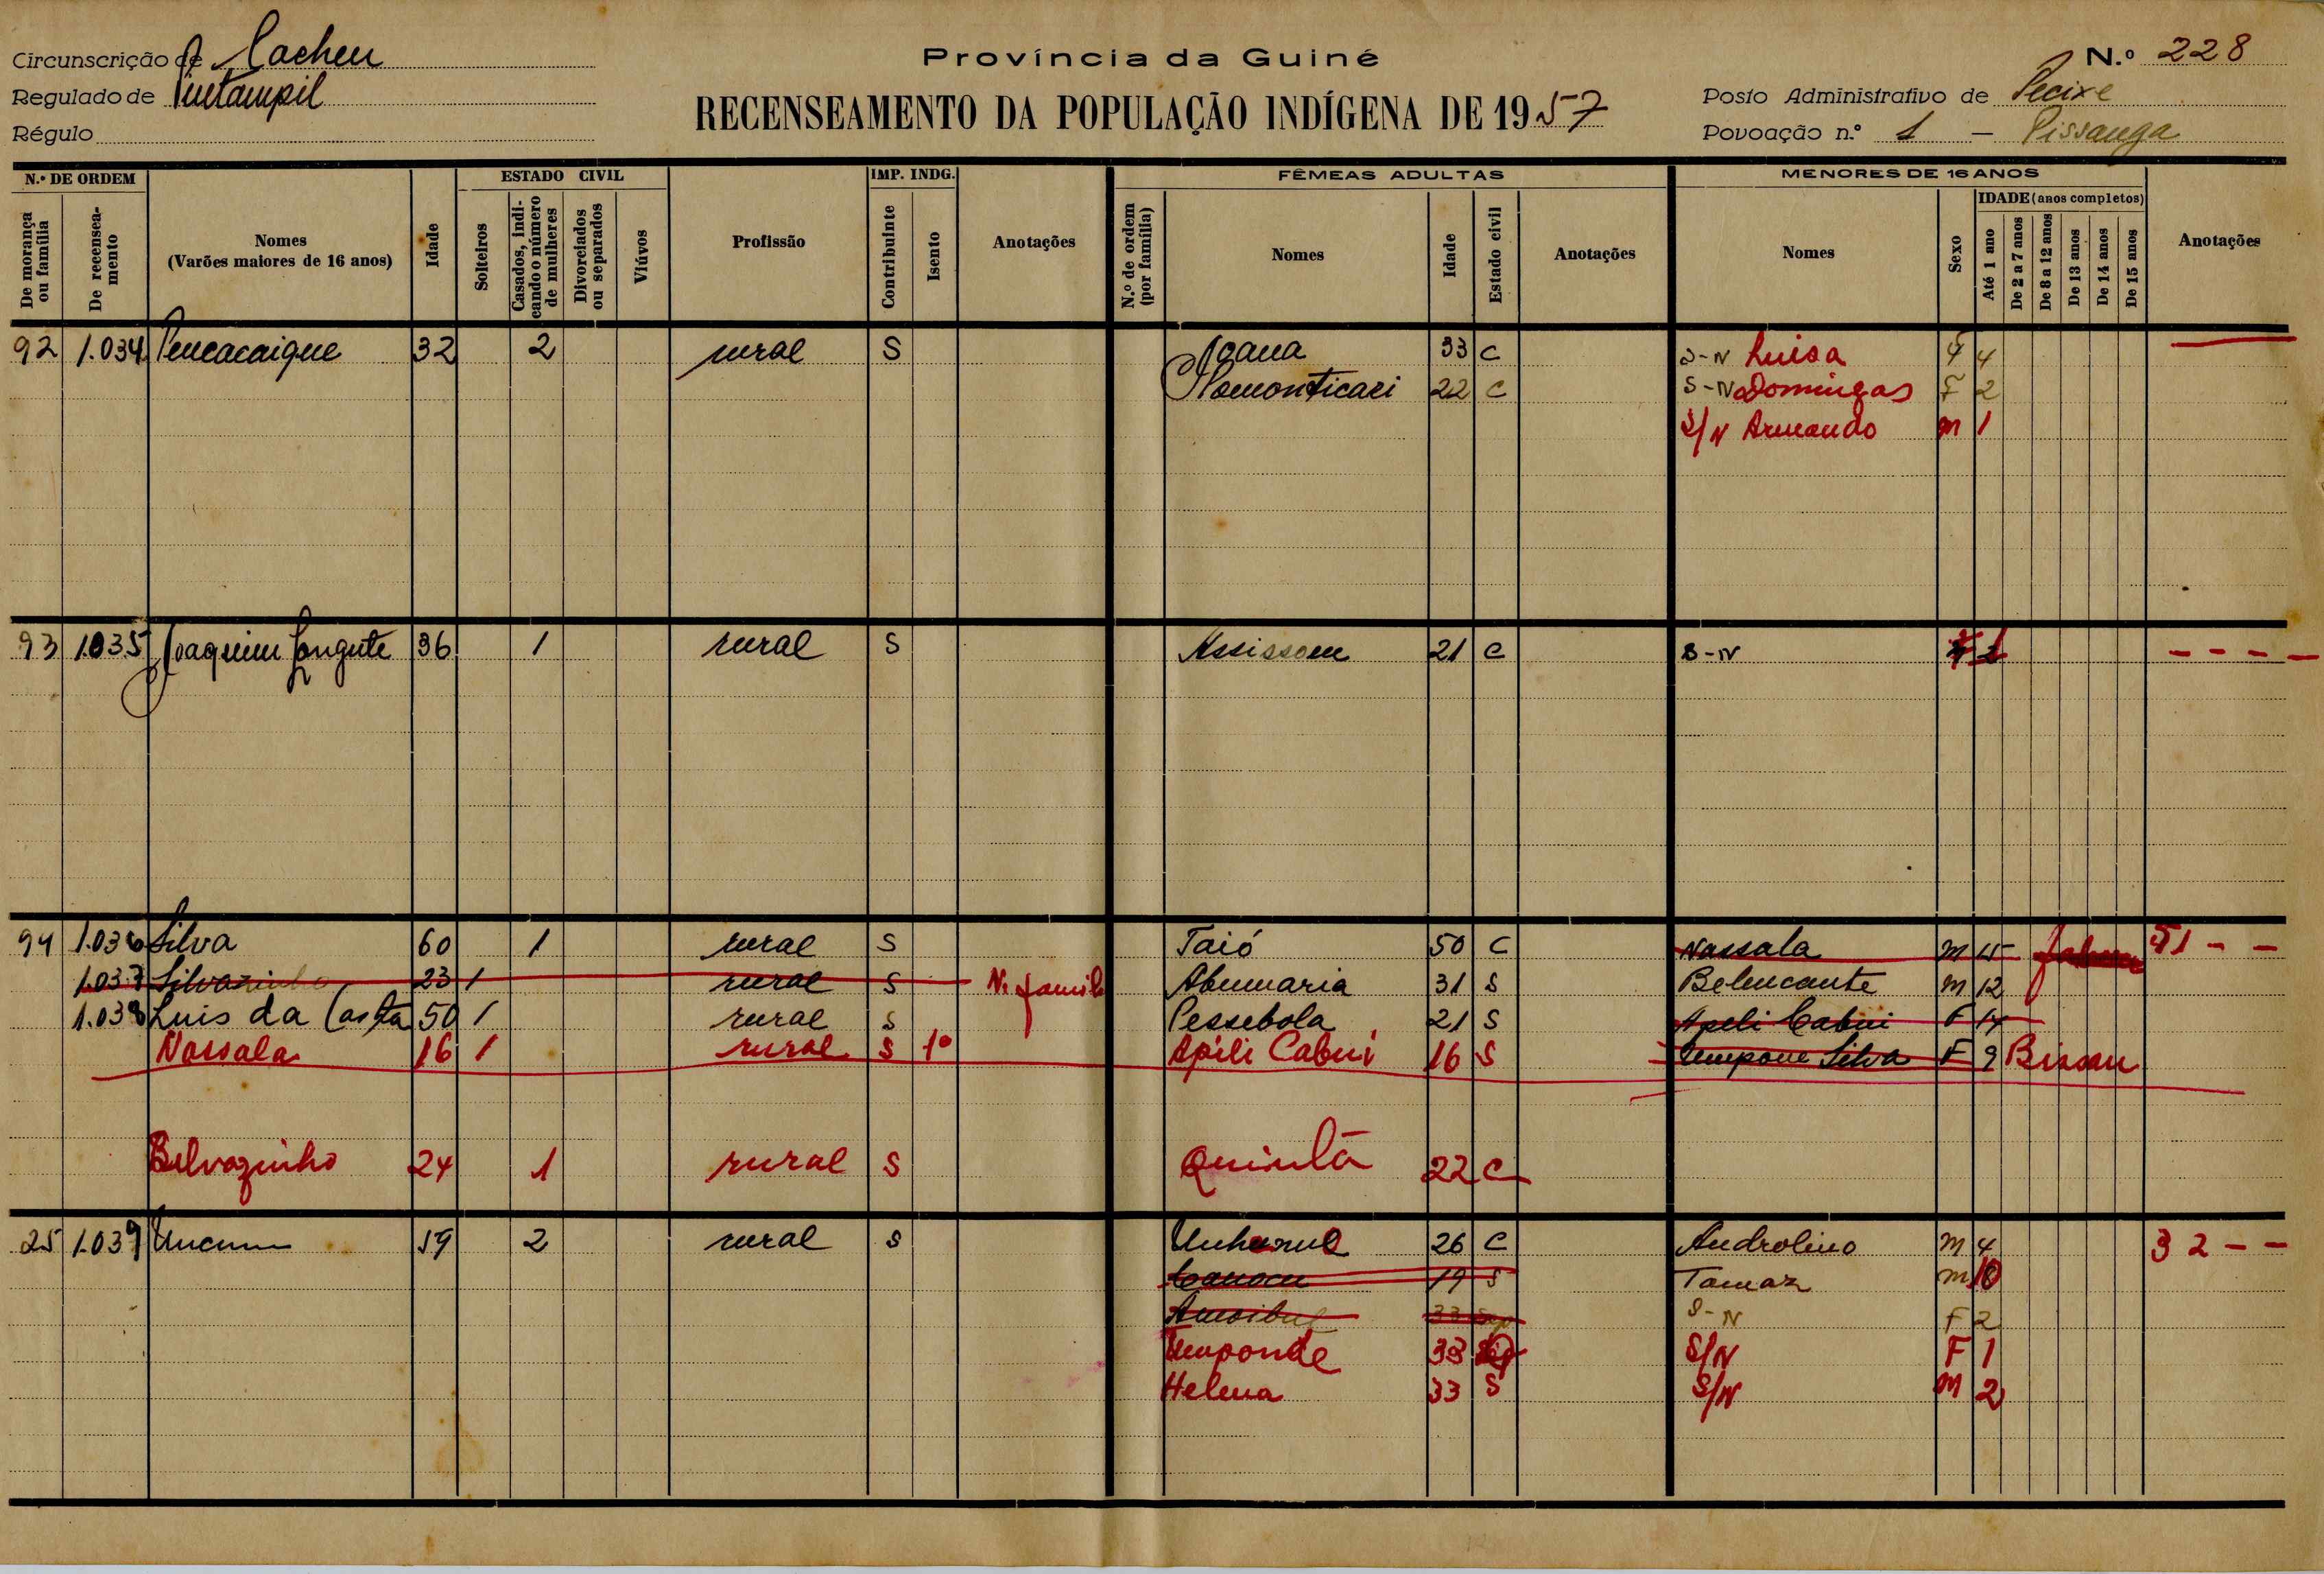 Circunscrição de Cacheu
Regulado de
Régulo
Província da Guiné
RECENSEAMENTO DA POPULAÇÃO INDÍGENA DE 1957
N.º 228
Posto Administrativo de Pecixe
Povoação n.º 1 - Pissanga
N.º DE ORDEM
De morança ou família
De recenseamento
Nomes
(Varões maiores de 16 anos)
Idade
ESTADO CIVIL
Solteiros
Casados, indicando o número de mulheres
Divorciados ou separados
Viúvos
Profissão
IMP. INDG.
Contribuinte
Isento
Anotações
FÊMEAS ADULTAS
N.º de ordem (por família)
Nomes
Idade
Estado civil
Anotações
MENORES DE 16 ANOS
Nomes
Sexo
IDADE (anos completos)
Até 1 ano
De 2 a 7 anos
De 8 a 12 anos
De 13 anos
De 14 anos
De 15 anos
Anotações
92 1.034 32 2 rural S Joana 33 C S-N Luisa F 4
22 C S-N Domingas F 2
S/N Armando M 1
93 1.035 Joaquim 36 1 rural S Assissom 21 C S-N
94 1.036 Silva 60 1 rural S Taió 50 C Nassala M 15 51 - -
1.037 Silvazinho 23 1 rural S N. famil Abumaria 31 S Belencante M 12
1.038 Luis da Costa 50 1 rural S Pessebola 21 S Apili Cabui F 14
Nassala 16 1 rural S 1º Apili Cabui 16 S Umpone Silva F 9 Bissau
24 1 rural S Quintã 22 C
25 1.039 59 2 rural S 26 C Androlino M 4 32 - -
19 S Tomaz M 10
S-N F 2
Umponde 33 S/N F 1
Helena 33 S S/N M 2